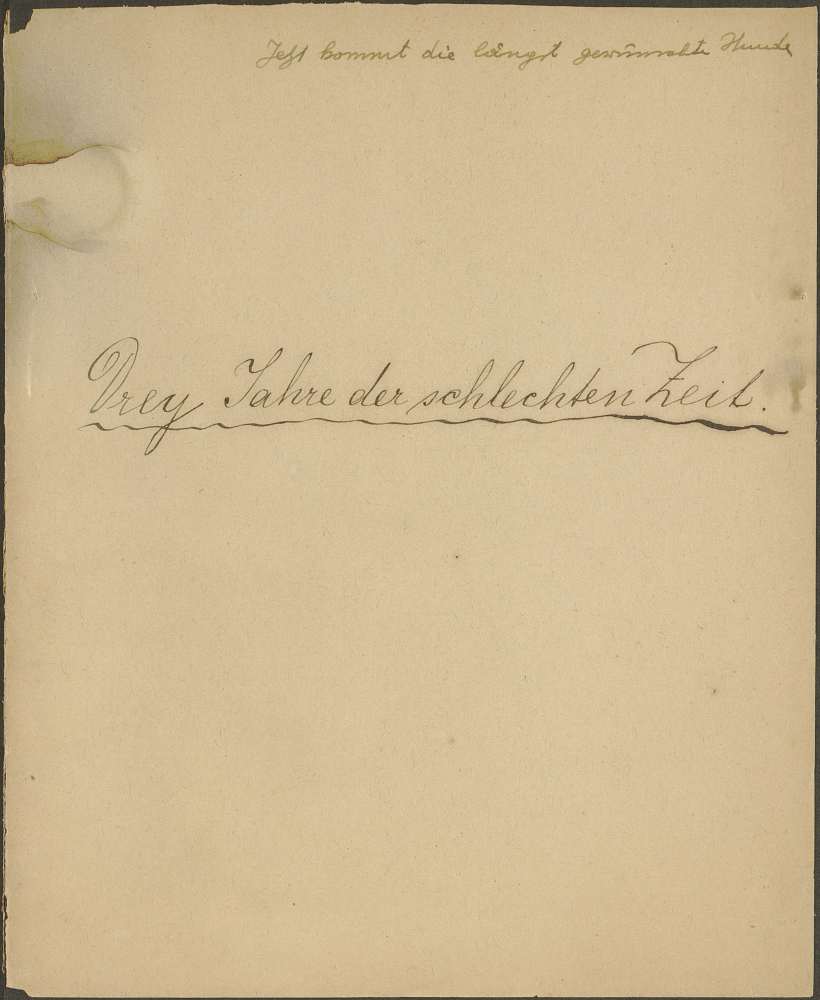 Jetzt kommt die längst gewünschte Stunde
Drey Jahre der schlechten Zeit.